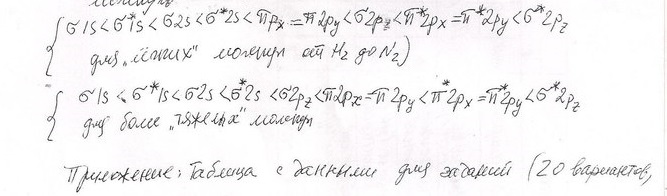 σ1s < σ*1s < σ2s < σ*2s < πpx = π2py < σ2pz < π*2px = π*2py < σ*2pz
для „лёгких" молекул от H2 до N2)
σ1s < σ*1s < σ2s < σ*2s < σ2pz < π2px = π2py < π*2px = π*2py < σ*2pz
для более „тяжелых" молекул
Приложение: Таблица с данными для заданий (20 вариантов,